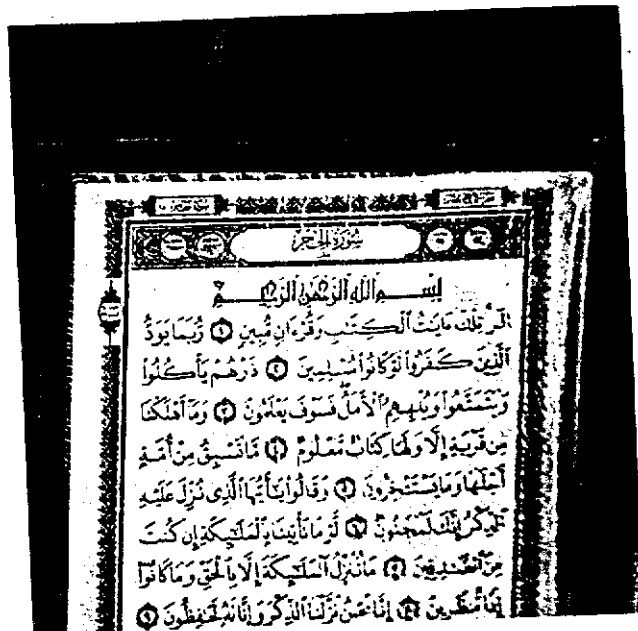 سُورَةُ الحِجْرِ
بِسْمِ اللَّهِ الرَّحْمَٰنِ الرَّحِيمِ
الٓر ۚ تِلْكَ ءَايَٰتُ ٱلْكِتَٰبِ وَقُرْءَانٍ مُّبِينٍ ١ رُّبَمَا يَوَدُّ
ٱلَّذِينَ كَفَرُوا۟ لَوْ كَانُوا۟ مُسْلِمِينَ ٢ ذَرْهُمْ يَأْكُلُوا۟
وَيَتَمَتَّعُوا۟ وَيُلْهِهِمُ ٱلْأَمَلُ ۖ فَسَوْفَ يَعْلَمُونَ ٣ وَمَآ أَهْلَكْنَا
مِن قَرْيَةٍ إِلَّا وَلَهَا كِتَابٌ مَّعْلُومٌ ٤ مَّا تَسْبِقُ مِنْ أُمَّةٍ
أَجَلَهَا وَمَا يَسْتَـْٔخِرُونَ ٥ وَقَالُوا۟ يَٰٓأَيُّهَا ٱلَّذِى نُزِّلَ عَلَيْهِ
ٱلذِّكْرُ إِنَّكَ لَمَجْنُونٌ ٦ لَّوْ مَا تَأْتِينَا بِٱلْمَلَٰٓئِكَةِ إِن كُنتَ
مِنَ ٱلصَّٰدِقِينَ ٧ مَا نُنَزِّلُ ٱلْمَلَٰٓئِكَةَ إِلَّا بِٱلْحَقِّ وَمَا كَانُوٓا۟
إِذًا مُّنظَرِينَ ٨ إِنَّا نَحْنُ نَزَّلْنَا ٱلذِّكْرَ وَإِنَّا لَهُۥ لَحَٰفِظُونَ ٩